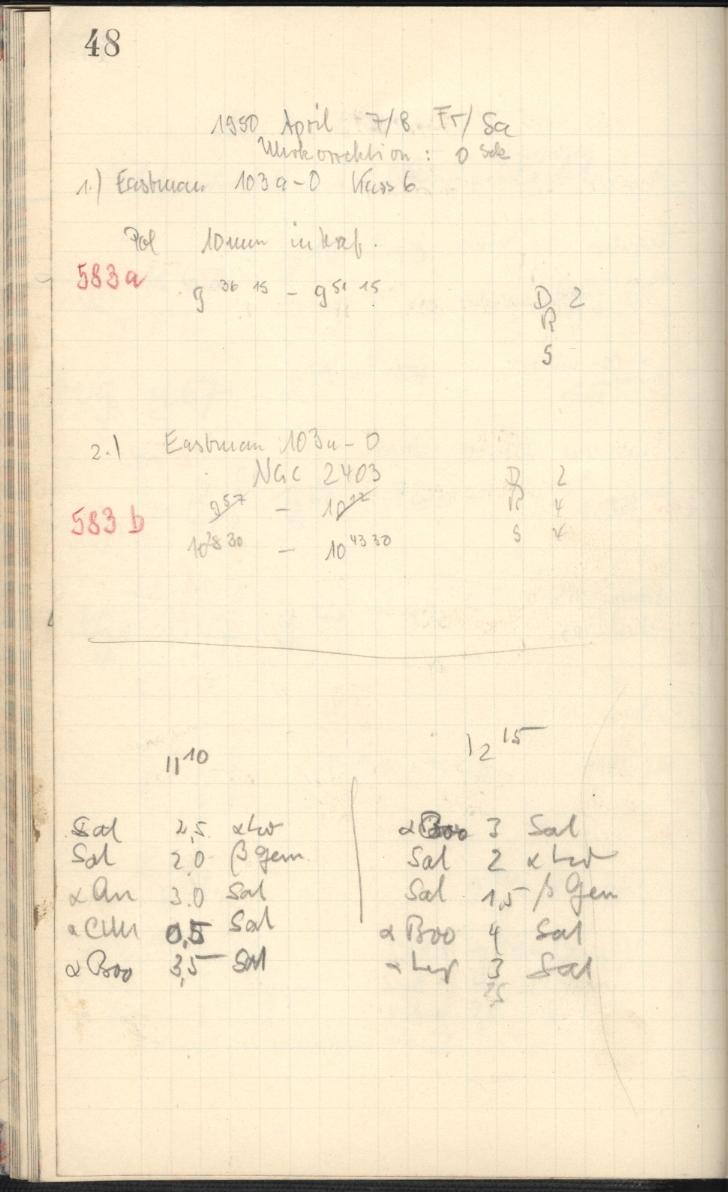 48
1950 April 7/8 Fr/Sa
Uhrkorrektion : 0 Sek
1.) Eastman 103a-O Kass 6
Pol 10 mm
583a
9 36 15 - 9 51 15
D 2
R
S
2.) Eastman 103a-O
NGC 2403
D 2
583b
9 57 - 10 12
R 4
10 28 30 - 10 43 30
S 4
11 10
Sat 2,5 α Leo
Sat 2.0 β Gem
α Aur 3.0 Sat
α CMi 0,5 Sat
α Boo 3,5 Sat
12 15
α Boo 3 Sat
Sat 2 α Leo
Sat 1,5 β Gem
α Boo 4 Sat
3 Sat